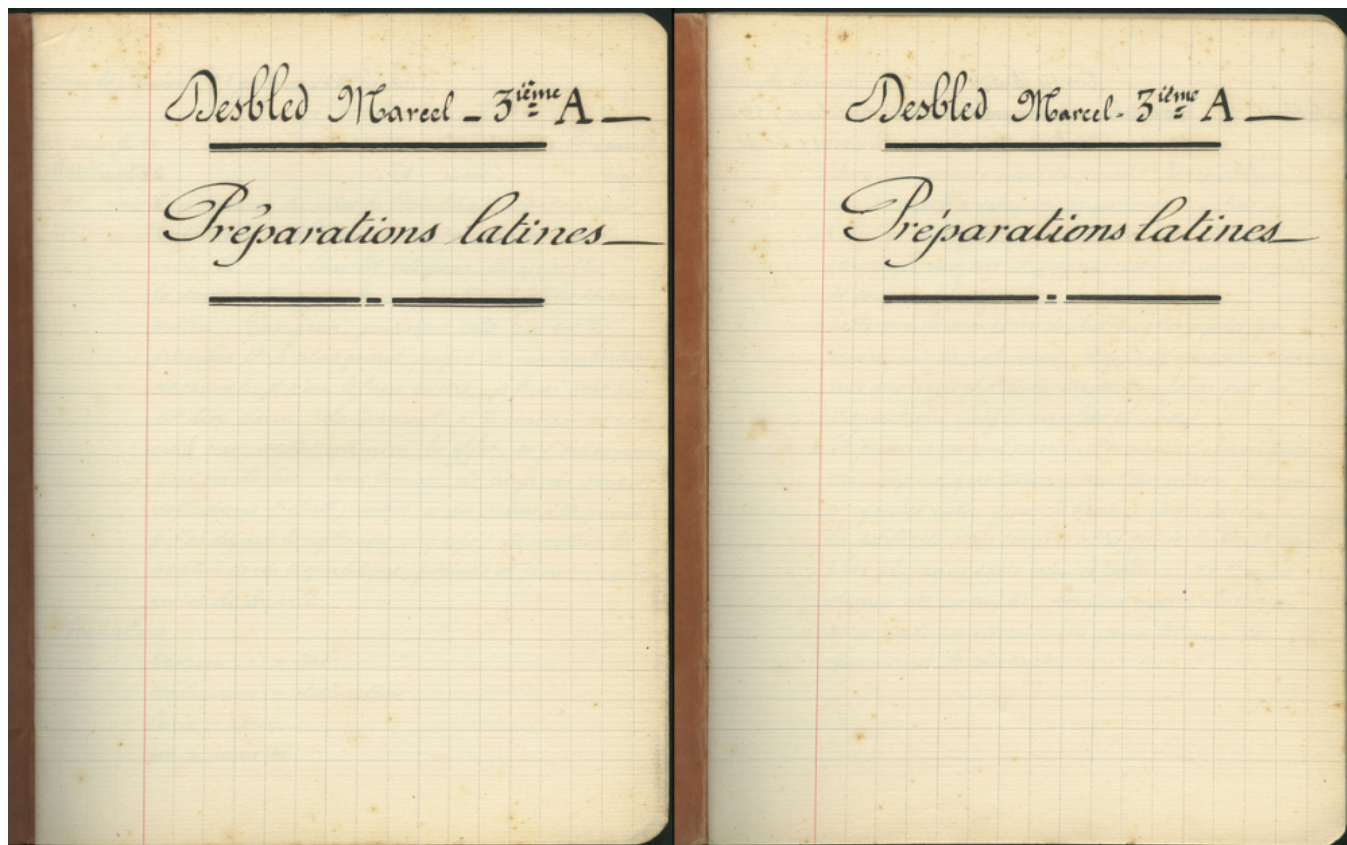 Desbled Marcel - 3ième A
Préparations latines
Desbled Marcel - 3ième A
Préparations latines